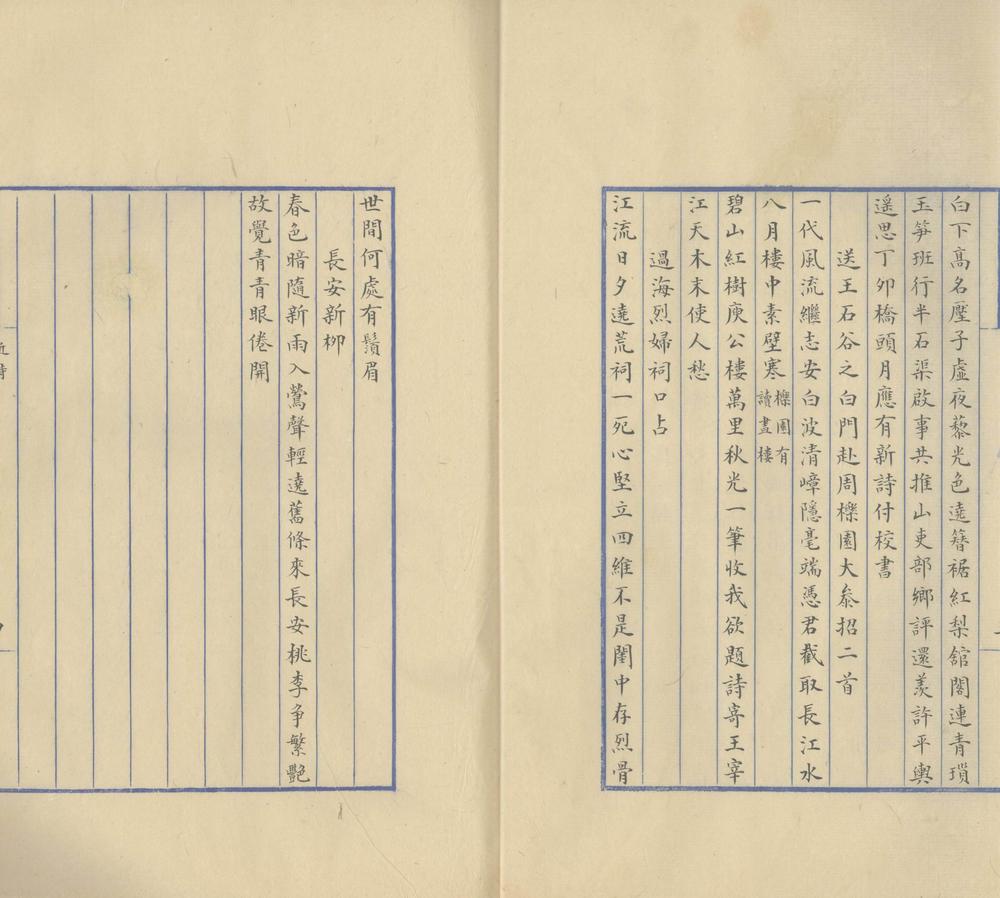 白下髙名壓子虛夜藜光色遶簪裾紅梨舘閣連青瑣
玉笋班行半石渠啟事共推山吏部鄉評還羡許平輿
遥思丁夘橋頭月應有新詩付校書
送王石谷之白門赴周櫟園大叅招二首
一代風流繼志安白波清嶂隱毫端憑君截取長江水
八月樓中素壁寒櫟園有讀畫樓
碧山紅樹庾公樓萬里秋光一筆收我欲題詩寄王宰
江天木末使人愁
過海烈婦祠口占
江流日夕遶荒祠一死心堅立四維不是閨中存烈骨
世間何處有鬚眉
長安新柳
春色暗隨新雨入鶯聲輕遶舊條來長安桃李争繁艷
故覺青青眼倦開